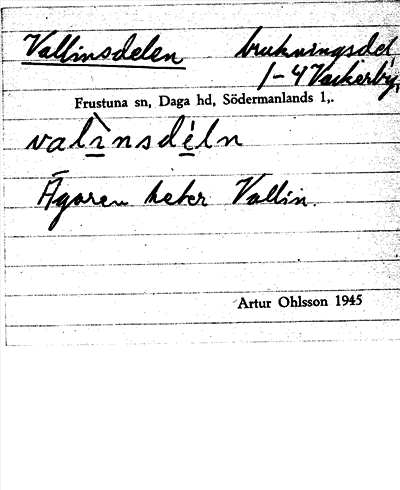 Vallinsdelen brukningsdel
1-4 Vackerby,
Frustuna sn, Daga hd, Södermanlands l,.
valìnsdéln
Ägaren heter Vallin.
Artur Ohlsson 1945